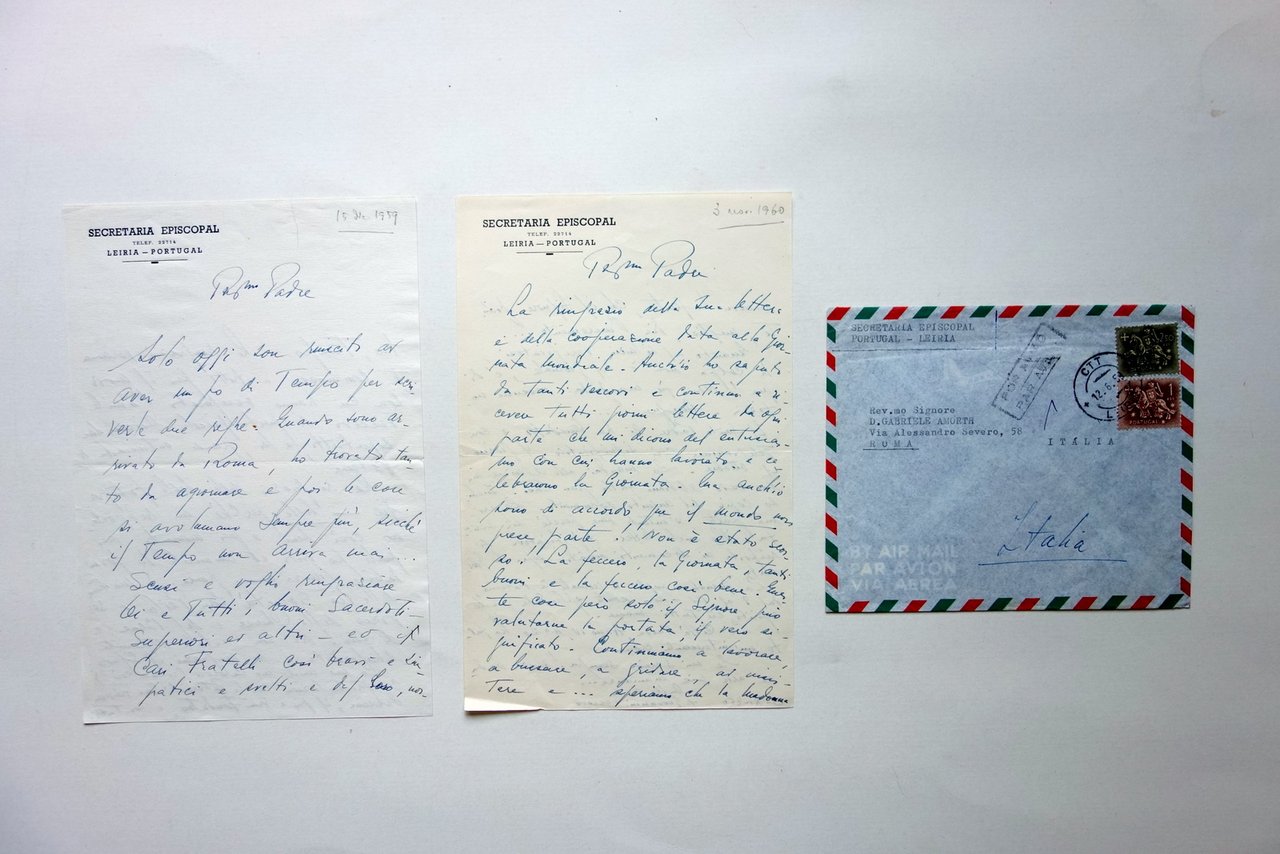 SECRETARIA EPISCOPAL
TELEF. 22714
LEIRIA — PORTUGAL
15 Dic. 1959
Rev.mo Padre
Solo oggi son riuscito ad
aver un po di Tempo per scri-
verLe due righe. Quando sono ar-
rivato da Roma, ho trovato tan-
to da agiornare e poi le cose
si avolumano sempre più, sicchè
il Tempo non arriva mai...
Scusi e voglio ringraziare
Lei e Tutti i buoni Sacerdoti
Superiori ed altri — ed i
Cari Fratelli così bravi e sim-
patici e svelti e del
SECRETARIA EPISCOPAL
TELEF. 22714
LEIRIA — PORTUGAL
3 nov. 1960
Rev.mo Padre
La ringrazio della sua lettera
e della cooperazione data alla Gior-
nata mondiale. Anch'io ho saputo
da tanti vescovi e continuo a ri-
cevere tutti giorni lettere da ogni
parte che mi dicono del entusias-
mo con cui hanno lavorato e ce-
lebrarono la Giornata. Ma anch'io
sono di accordo que il mondo non
prese parte! Non è stato scos-
so! La fecero, la Giornata, tanti
buoni e la fecero così bene. Ques-
te cose però solo il Signore può
valutarne la portata, il vero si-
gnificato. Continuiamo a lavorare,
a bussare, a gridare, ad insis-
Tere e ... speriamo che la madonna
SECRETARIA EPISCOPAL
PORTUGAL - LEIRIA
POR AVIÃO
PAR AVION
CTT
Rev.mo Signore
D.GABRIELE AMORTH
Via Alessandro Severo, 58
ROMA
ITÁLIA
Italia
BY AIR MAIL
PAR AVION
VIA AEREA